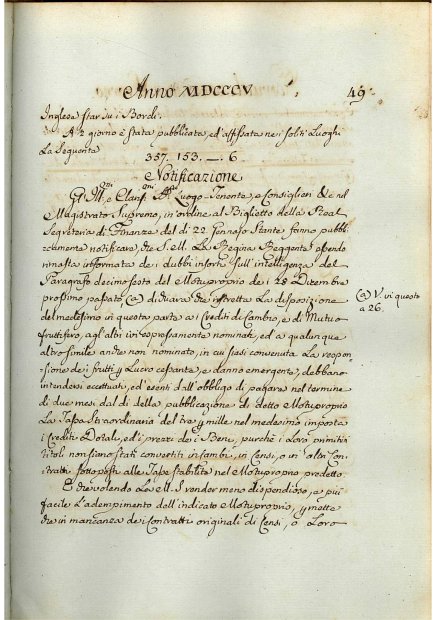 Anno MDCCCV 49
Inglese star su i Bordi.
A 2 giorno è stata pubblicata, ed affissata nei soliti Luoghi
La Seguente
357. 153. — 6.
Notificazione
Gl' Ill.mi, e Clariss.mi Luogo-Tenente, e Consiglieri & nel
Magistrato Supremo, in ordine al Biglietto della Real
Segreteria di Finanze del dì 22. Gennajo Stante fanno pubbli-
camente notificare, che S. M. La Regina Reggente essendo
rimasta informata dei dubbi insorti sull' intelligenza del
Paragrafo decimosesto del Motuproprio dei 28 Dicembre
prossimo passato (a) dichiara che ristretta La disposizione
del medesimo in questa parte a i Crediti di Cambio, e di Mutuo
fruttifero, agl' altri ivi espressamente nominati, ed a qualunque
altro simile anche non nominato, in cui siasi convenuta La respon-
sione dei frutti p Lucro cessante, e danno emergente, debbano
intendersi eccettuati, ed esenti dall' obbligo di pagare nel termine
di due mesi dal dì della pubblicazione di detto Motuproprio
La Tassa Straordinaria del tre p mille nel medesimo imposta
i Crediti Dotali, ed i prezzi dei Beni, purchè i Loro primitivi
titoli non siano stati convertiti in Cambi, in Censi, o in altri Con-
tratti sottoposti alle Tasse stabilite nel Motuproprio predetto
E che volendo La M. S. render meno dispendioso, e più
facile L' adempimento dell' indicato Motuproprio, p mette
che in mancanza dei Contratti originali di Censi, o Loro
(a) V. in questo
a 26.